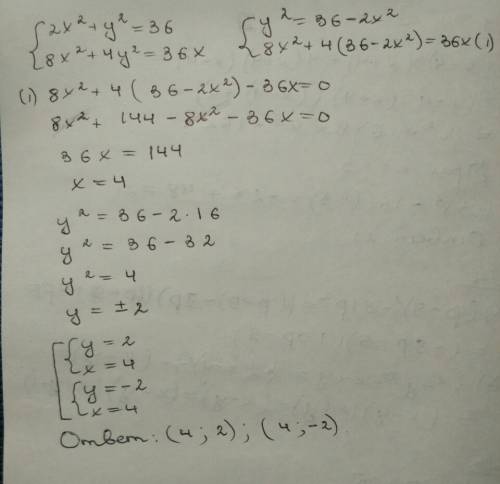 {2x²+y²=36 {y²=36-2x²
{8x²+4y²=36x {8x²+4(36-2x²)=36x(1)
(1) 8x²+4(36-2x²)-36x=0
8x²+144-8x²-36x=0
36x=144
x=4
y²=36-2·16
y²=36-32
y²=4
y=±2
[{y=2
{x=4
{y=-2
{x=4
Ответ: (4;2); (4;-2).